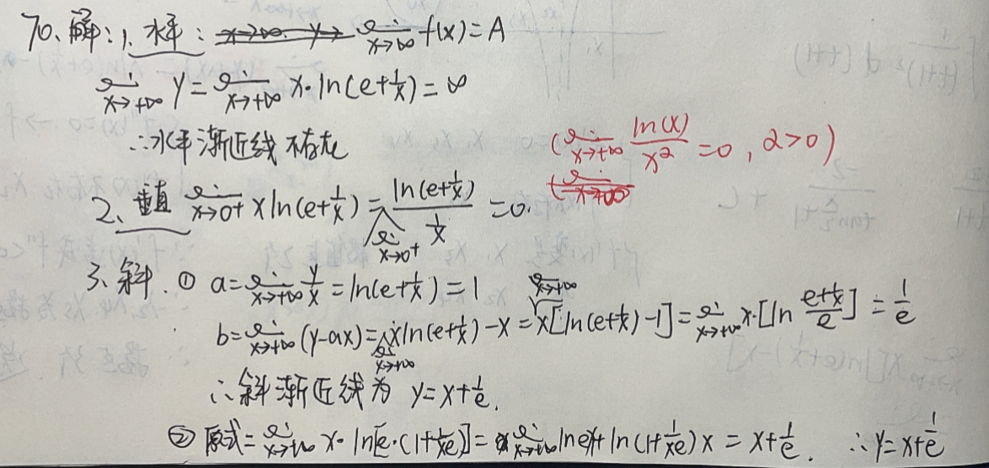 70、解:1. 水平: lim x→∞ f(x)=A
lim x→+∞ y = lim x→+∞ x·ln(e+1/x)=∞
∴水平渐近线不存在
(lim x→+∞ ln(x)/x^α =0, α>0)
2. 垂直 lim x→0+ xln(e+1/x) = lim x→0+ ln(e+1/x)/(1/x) =0.
3. 斜. ① a= lim x→+∞ y/x = ln(e+1/x)=1
b= lim x→+∞ (y-ax) = lim x→+∞ xln(e+1/x)-x = lim x→+∞ x[ln(e+1/x)-1] = lim x→+∞ x·[ln (e+1/x)/e] = 1/e
∴斜渐近线为 y=x+1/e.
② 原式= lim x→+∞ x·ln[e·(1+1/xe)] = lim x→+∞ lne x+ln(1+1/xe)x = x+1/e. ∴y=x+1/e